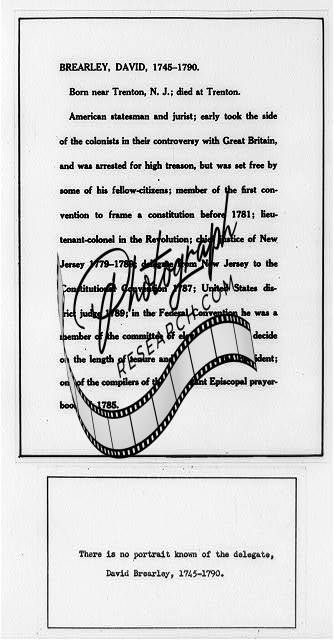 BREARLEY, DAVID, 1745–1790.
Born near Trenton, N. J.; died at Trenton.
American statesman and jurist; early took the side
of the colonists in their controversy with Great Britain,
and was arrested for high treason, but was set free by
some of his fellow-citizens; member of the first con-
vention to frame a constitution before 1781; lieu-
tenant-colonel in the Revolution; chief justice of New
Jersey 1779–1789; delegate from New Jersey to the
Constitutional Convention 1787; United States dis-
trict judge 1789; in the Federal Convention he was a
member of the committee of decide
on the length of tenure and ident;
one of the compilers of the Episcopal prayer-
book 1785.
Photograph
RESEARCH.COM
There is no portrait known of the delegate,
David Brearley, 1745-1790.